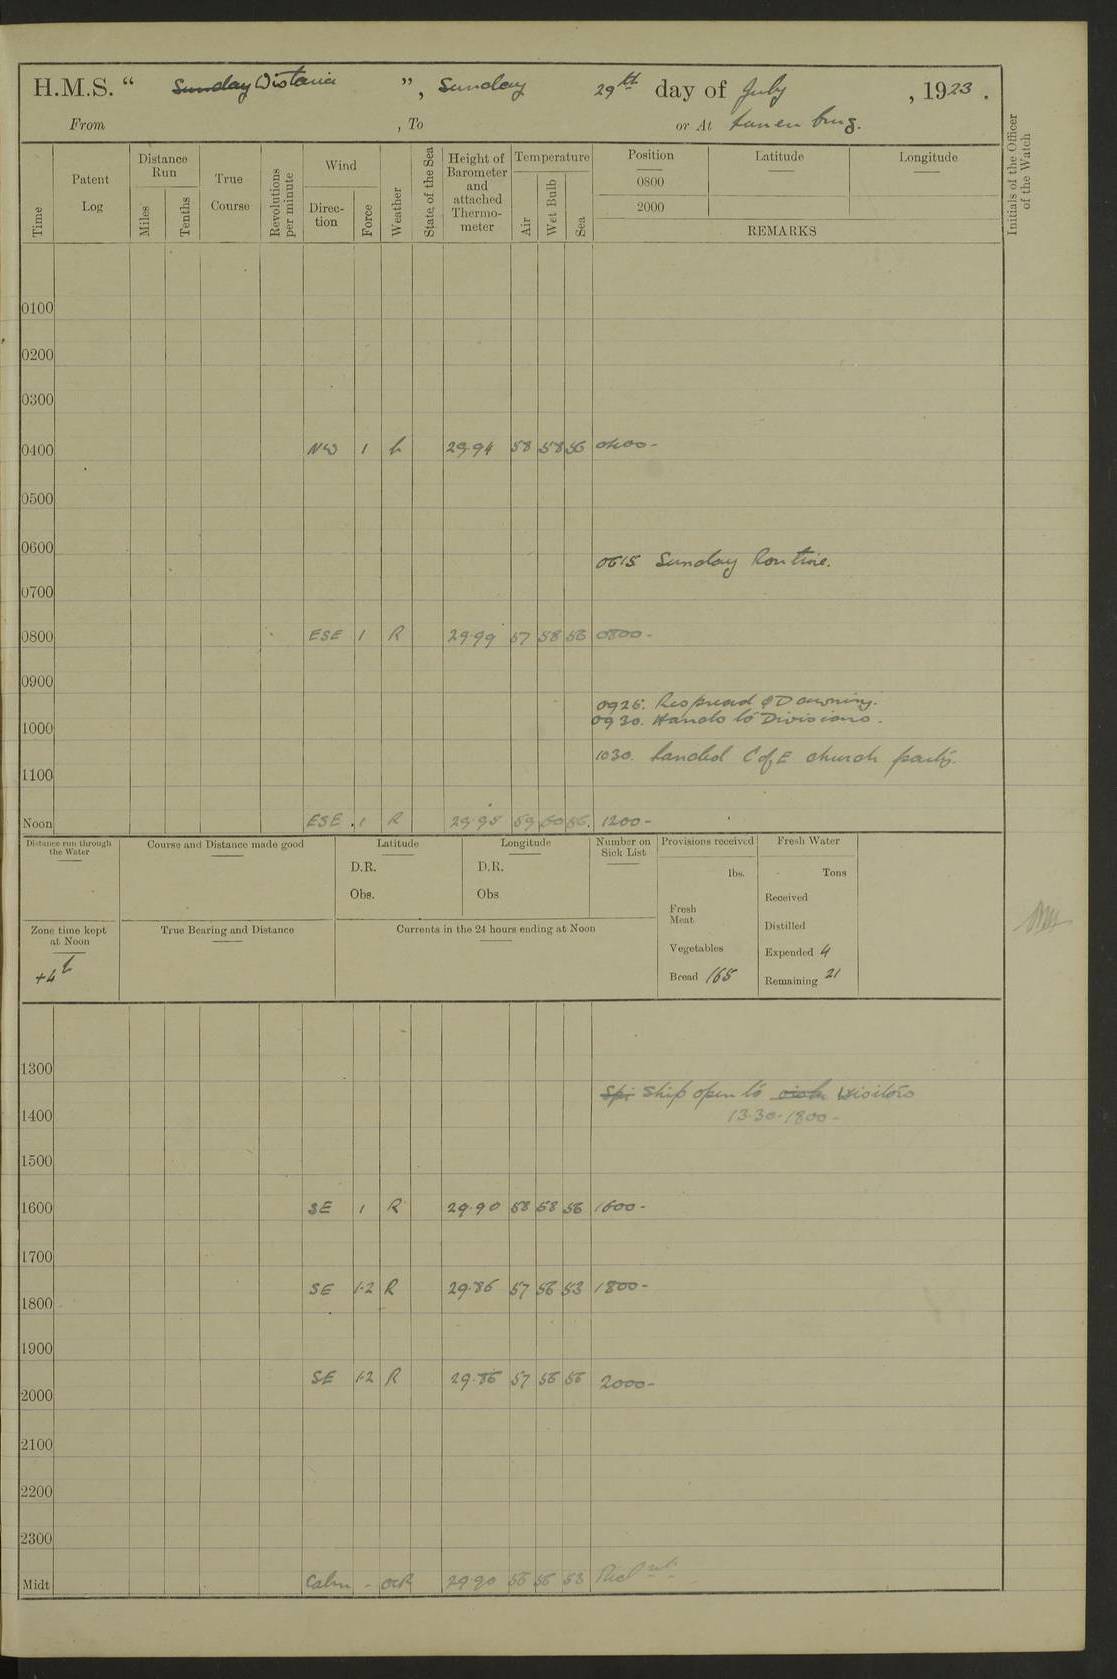 H.M.S. “ Sunday Wistaria ”, Sunday 29th day of July, 1923.
From , To or At Lunenburg.
Time
Patent Log
Distance Run
Miles
Tenths
True Course
Revolutions per minute
Wind
Direction
Force
Weather
State of the Sea
Height of Barometer and attached Thermometer
Temperature
Air
Wet Bulb
Sea
Position
0800
2000
Latitude
Longitude
REMARKS
Initials of the Officer of the Watch
0100
0200
0300
0400 NW 1 29.94 58 58 56 0400-
0500
0600
0615 Sunday Routine.
0700
0800 ESE 1 R 29.99 57 58 56 0800-
0900
0925. Respread QD awning.
0930. Hands to Divisions.
1000
1030. Landed C of E church party.
1100
Noon ESE 1 R 29.95 59 60 56 1200-
Distance run through the Water
Course and Distance made good
Latitude
D.R.
Obs.
Longitude
D.R.
Obs
Number on Sick List
Provisions received
lbs.
Fresh Meat
Vegetables
Bread 165
Fresh Water
Tons
Received
Distilled
Expended 4
Remaining 21
Zone time kept at Noon
+4h
True Bearing and Distance
Currents in the 24 hours ending at Noon
1300
Spi Ship open to Visitors
13.30-1800-
1400
1500
1600 SE 1 R 29.90 58 58 56 1600-
1700
SE 1-2 R 29.86 57 56 53 1800-
1800
1900
SE 1-2 R 29.86 57 56 56 2000-
2000
2100
2200
2300
Midt Calm - OCR 29.90 56 56 53